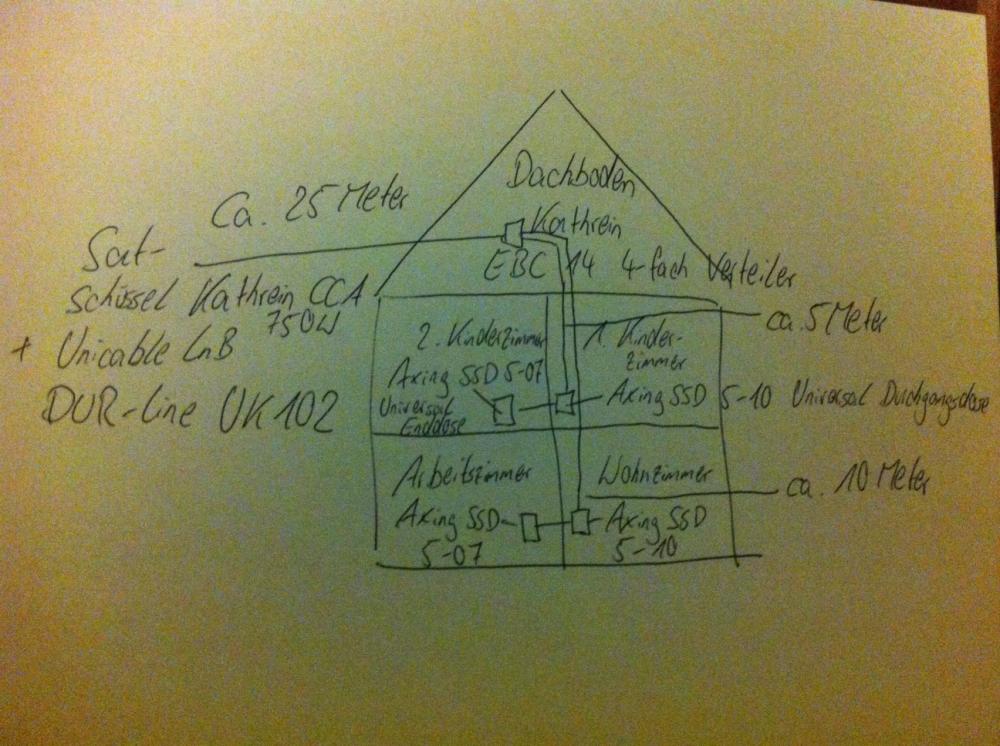 Dachboden
Ca. 25 Meter
Kathrein
EBC 14 4-fach Verteiler
Sat-
schüssel Kathrein CCA
750W
+ Unicable LnB
DUR-Line UK 102
ca. 5 Meter
2. Kinderzimmer
Axing SSD 5-07
Universal
Enddose
1. Kinder-
zimmer
Axing SSD 5-10 Universal Durchgangsdose
Arbeitszimmer
Axing SSD
5-07
Wohnzimmer
ca. 10 Meter
Axing SSD
5-10